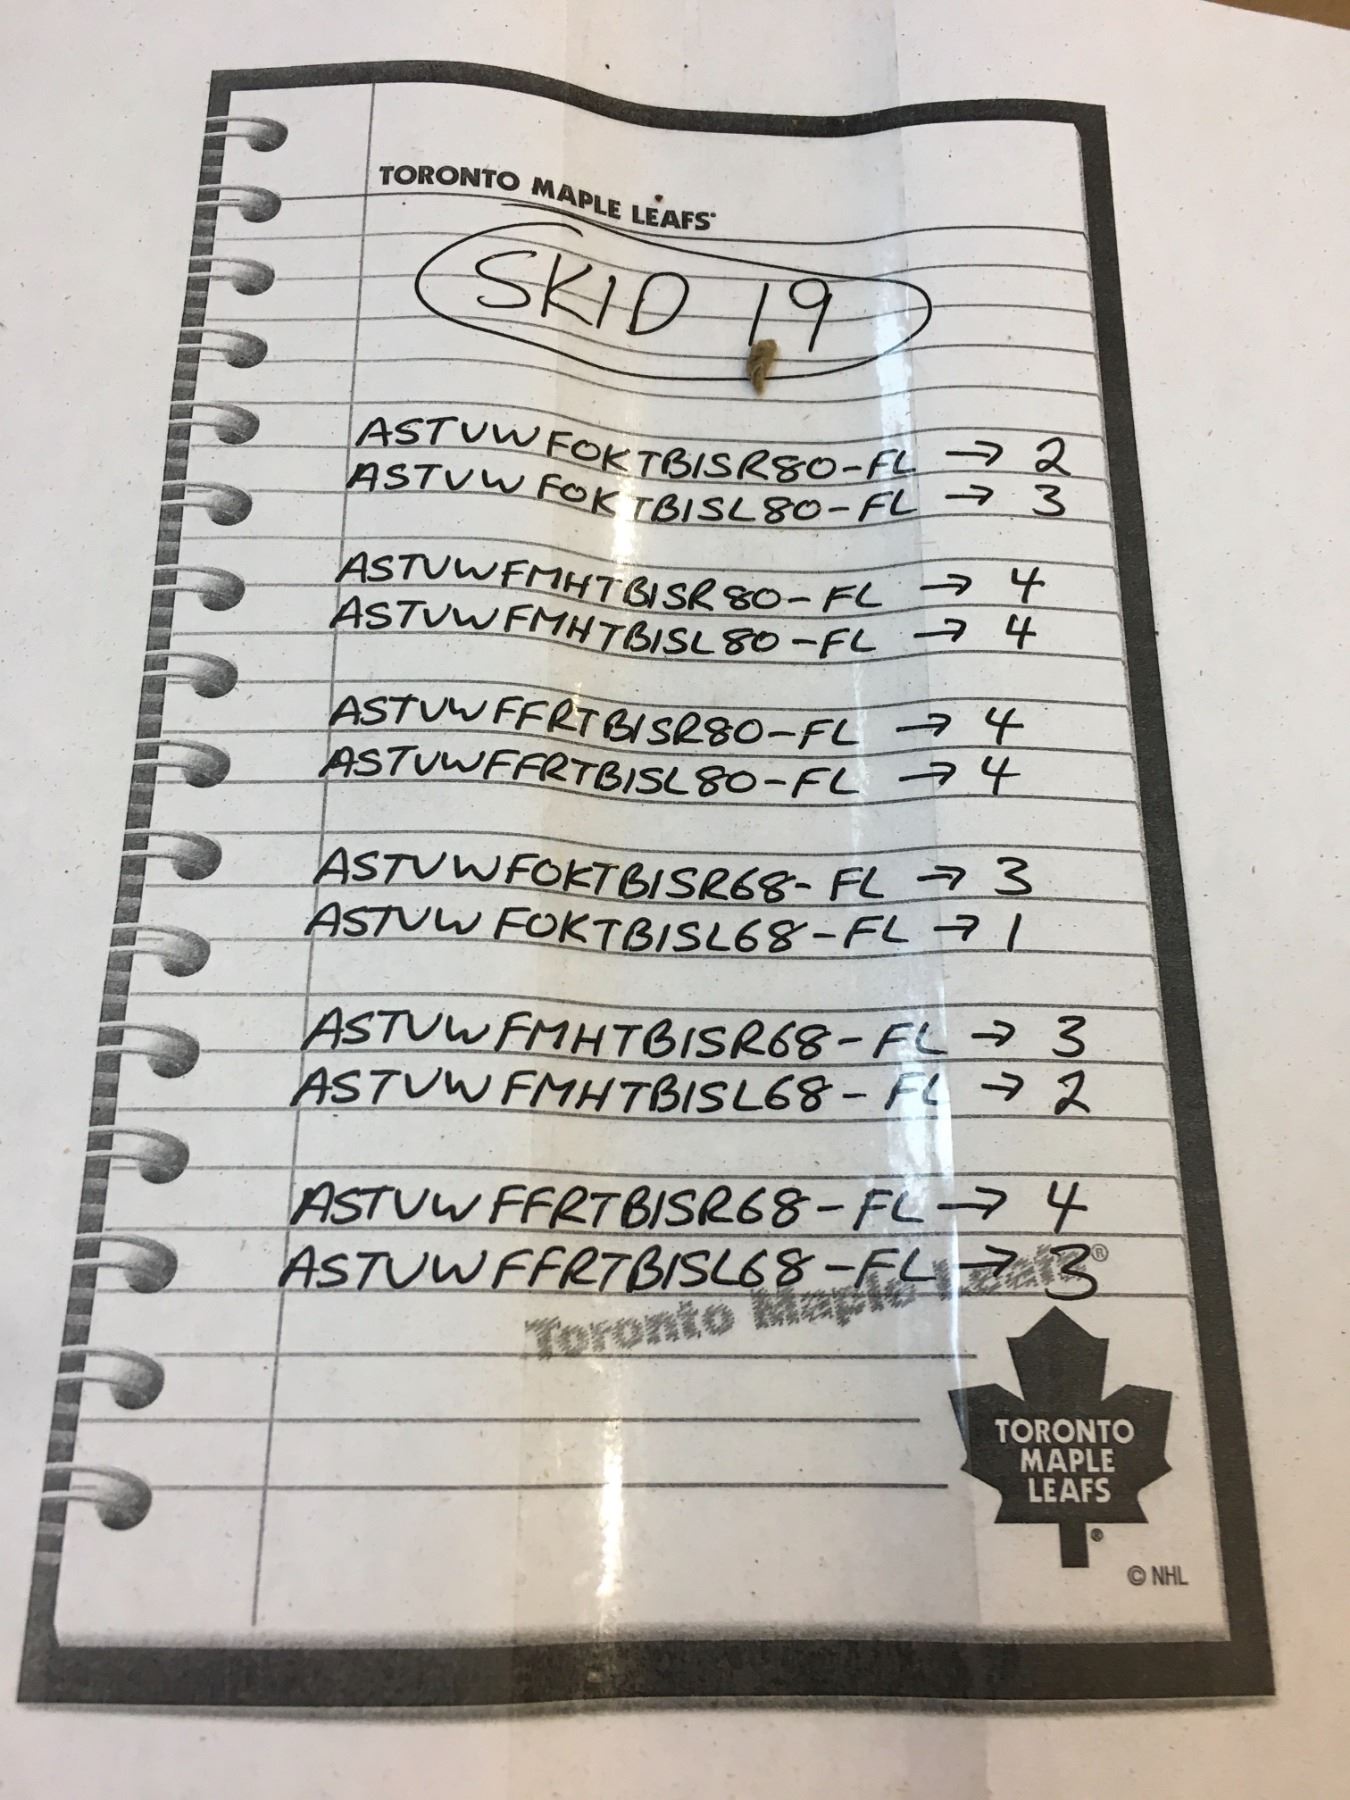 TORONTO MAPLE LEAFS
SKID 19
ASTUWFOKTBISR80-FL → 2
ASTUWFOKTBISL80-FL → 3
ASTUWFMHTBISR80-FL → 4
ASTUWFMHTBISL80-FL → 4
ASTUWFFRTBISR80-FL → 4
ASTUWFFRTBISL80-FL → 4
ASTUWFOKTBISR68-FL → 3
ASTUWFOKTBISL68-FL → 1
ASTUWFMHTBISR68-FL → 3
ASTUWFMHTBISL68-FL → 2
ASTUWFFRTBISR68-FL → 4
ASTUWFFRTBISL68-FL → 3
Toronto Maple Leafs®
TORONTO
MAPLE
LEAFS
®
© NHL